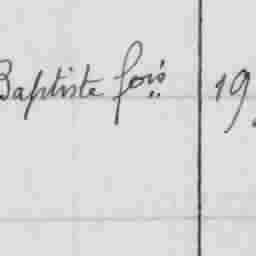 Baptiste fois 19